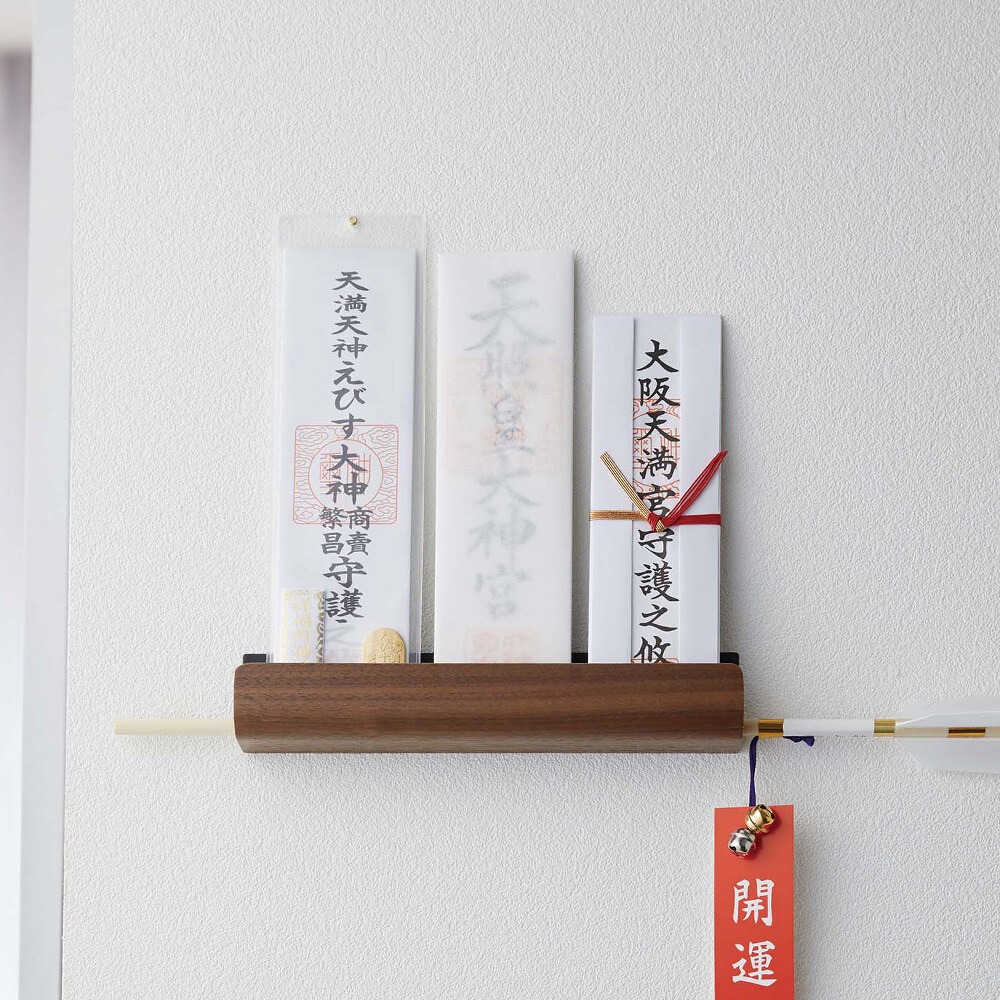 天満天神えびす大神
商賣
繁昌
守護
天照皇大神宮
大阪天満宮守護之攸
開運